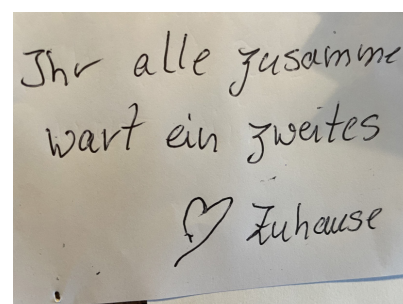 Ihr alle zusamme
wart ein zweites
♡ Zuhause